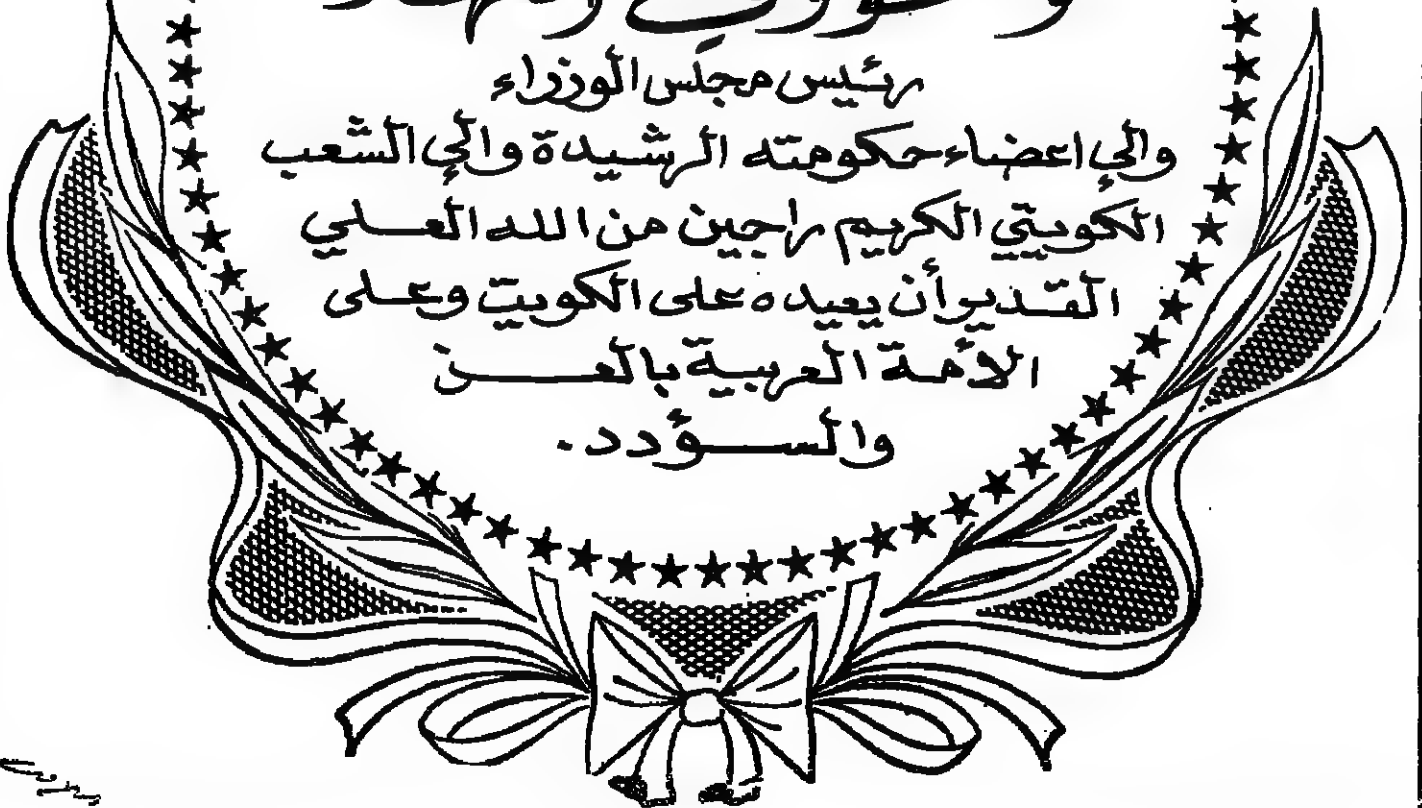 رئيس مجلس الوزراء
والي اعضاء حكومته الرشيدة والي الشعب
الكويتي الكريم راجين من الله العلي
القدير أن يعيده على الكويت وعلى
الأمة العربية بالعز
والسؤدد.